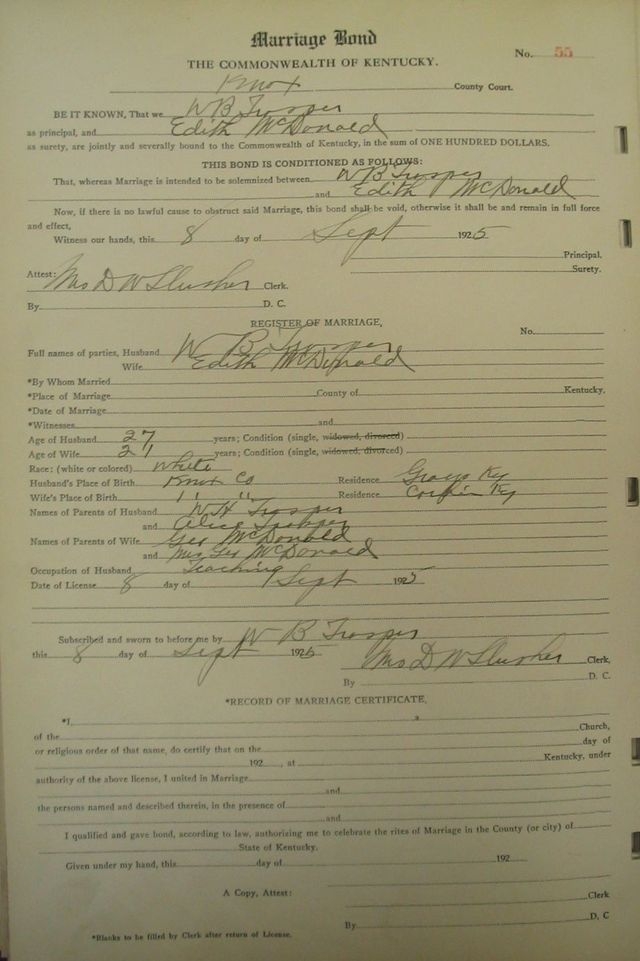 Marriage Bond
No. 55
THE COMMONWEALTH OF KENTUCKY.
Knox County Court.
BE IT KNOWN, That we W B Trosper
as principal, and Edith McDonald
as surety, are jointly and severally bound to the Commonwealth of Kentucky, in the sum of ONE HUNDRED DOLLARS.
THIS BOND IS CONDITIONED AS FOLLOWS:
That, whereas Marriage is intended to be solemnized between W B Trosper
and Edith McDonald
Now, if there is no lawful cause to obstruct said Marriage, this bond shall be void, otherwise it shall be and remain in full force
and effect,
Witness our hands, this 8 day of Sept 1925
Principal.
Surety.
Attest: Mrs D W Slusher Clerk.
By D. C.
REGISTER OF MARRIAGE,
No.
Full names of parties, Husband W B Trosper
Wife Edith McDonald
*By Whom Married
*Place of Marriage County of Kentucky.
*Date of Marriage
*Witnesses and
Age of Husband 27 years; Condition (single, widowed, divorced)
Age of Wife 21 years; Condition (single, widowed, divorced)
Race: (white or colored) White
Husband's Place of Birth Knox Co Residence Grays Ky
Wife's Place of Birth " " Residence Corbin Ky
Names of Parents of Husband W H Trosper
and Alice Trosper
Names of Parents of Wife Geo McDonald
and Mrs Geo McDonald
Occupation of Husband Teaching
Date of License 8 day of Sept 1925
Subscribed and sworn to before me by W B Trosper
this 8 day of Sept 1925 Mrs D W Slusher Clerk,
By D. C.
*RECORD OF MARRIAGE CERTIFICATE,
*I, a
of the Church,
or religious order of that name, do certify that on the day of
192 , at Kentucky, under
authority of the above license, I united in Marriage
and
the persons named and described therein, in the presence of
and
I qualified and gave bond, according to law, authorizing me to celebrate the rites of Marriage in the County (or city) of
State of Kentucky.
Given under my hand, this day of 192
A Copy, Attest: Clerk
By D. C
*Blanks to be filled by Clerk after return of License.